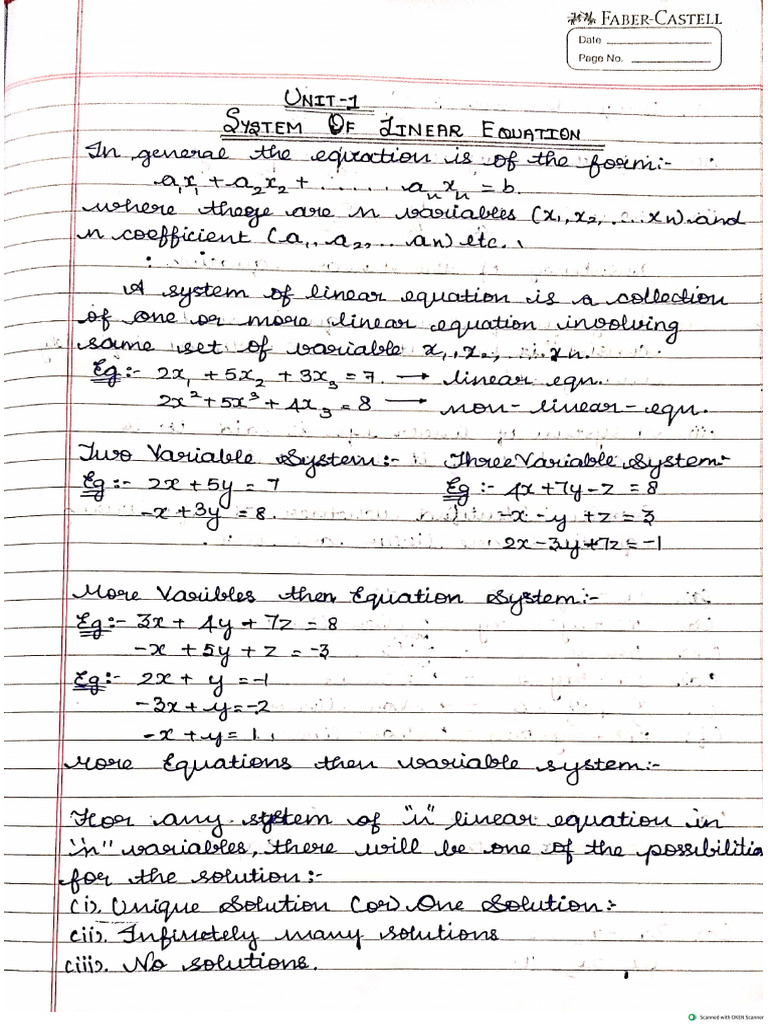 FABER-CASTELL
Date
Page No.
UNIT-1
SYSTEM OF LINEAR EQUATION
In general the equation is of the form:-
a₁x₁ + a₂x₂ + ...... aₙxₙ = b.
where these are n variables (x₁, x₂, ... xn) and
n coefficient (a₁, a₂, ... an) etc.
A system of linear equation is a collection
of one or more linear equation involving
same set of variable x₁, x₂, ... xn.
Eg:- 2x₁ + 5x₂ + 3x₃ = 7. → linear eqn.
2x² + 5x³ + 4x₃ = 8 → non-linear-eqn.
Two Variable System:- Three Variable System:-
Eg:- 2x + 5y = 7 Eg:- 4x + 7y - z = 8
-x + 3y = 8. -x - y + z = 3
2x - 3y + 7z = -1
More Varibles then Equation System:-
Eg:- 3x + 4y + 7z = 8
-x + 5y + z = -3
Eg:- 2x + y = -1
-3x + y = -2
-x + y = 1.
More Equations then variable system:-
For any system of "n" linear equation in
"n" variables, there will be one of the possibilitie
for the solution:-
(i). Unique Solution (or) One Solution:-
(ii). Infinetely many solutions
(iii). No solutions.
Scanned with OKEN Scanner